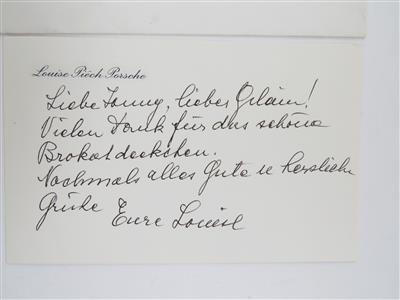 Louise Piëch Porsche
Liebe Jonny, lieber !
Vielen Dank für das schöne
Brokatdeckchen.
Nochmals alles Gute u herzliche
Grüße
Eure Louise